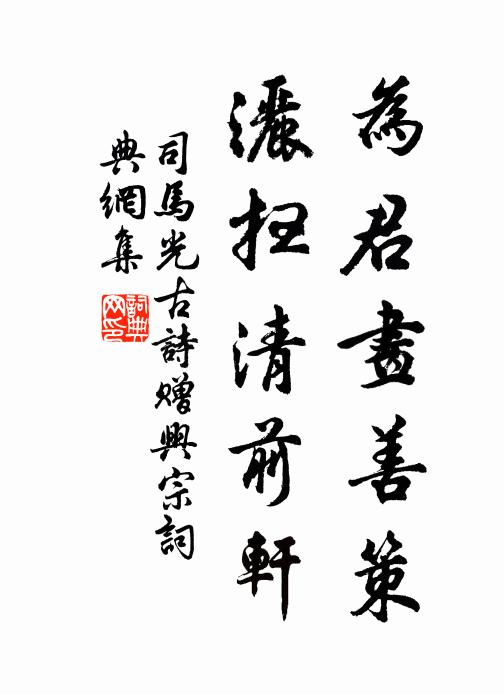 為君畫善策
灑扫清前軒
司馬光古詩贈興宗詞
典網集
詞典
网印